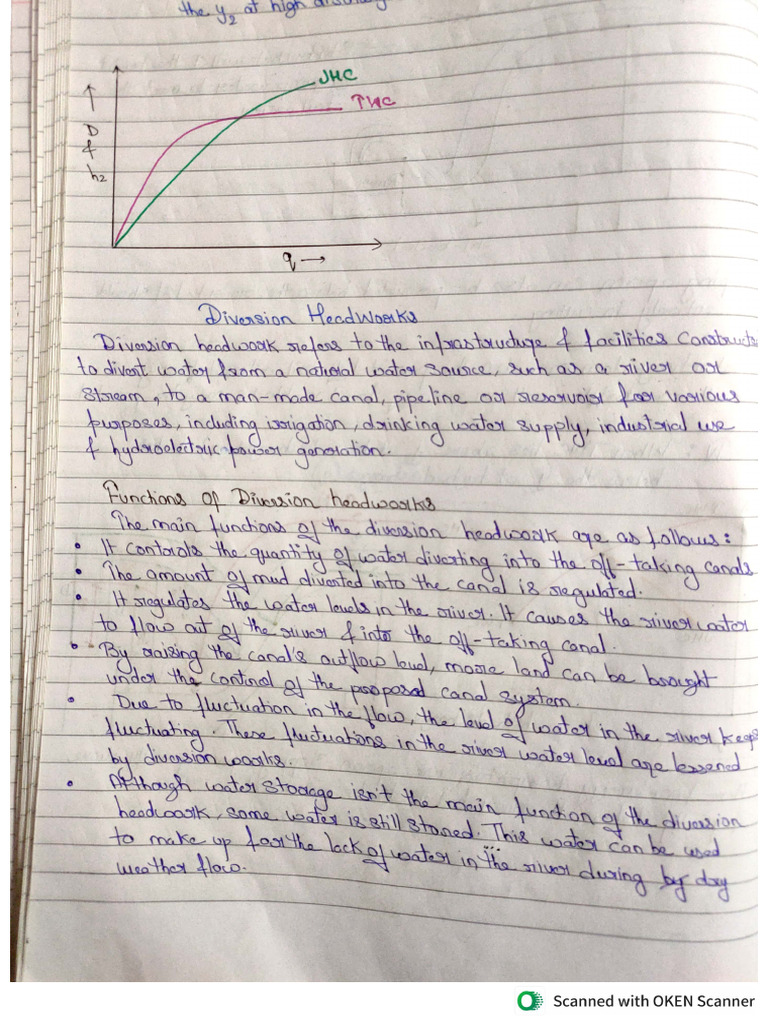 the y2 at high
JHC
TWC
D
&
h2
q →
Diversion Headworks
Diversion headwork refers to the infrastructure & facilities Constructe
to divert water from a natural water source, such as a river or
stream, to a man-made canal, pipeline or reservoir for various
purposes, including irrigation, drinking water supply, industrial use
& hydroelectric power generation.
Functions of Diversion headworks
The main functions of the diversion headwork are as follows:
• It controls the quantity of water diverting into the off-taking canals
• The amount of mud diverted into the canal is regulated.
• It regulates the water levels in the river. It causes the river water
to flow out of the river & into the off-taking canal.
• By raising the canal's outflow level, more land can be brought
under the control of the proposed canal system.
• Due to fluctuation in the flow, the level of water in the river keeps
fluctuating. These fluctuations in the river water level are lessened
by diversion works.
• Although water storage isn't the main function of the diversion
headwork, some water is still stored. This water can be used
to make up for the lack of water in the river during by dry
weather flow.
Scanned with OKEN Scanner